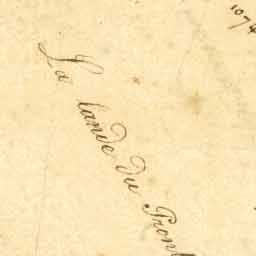 1074
La lande du Pront